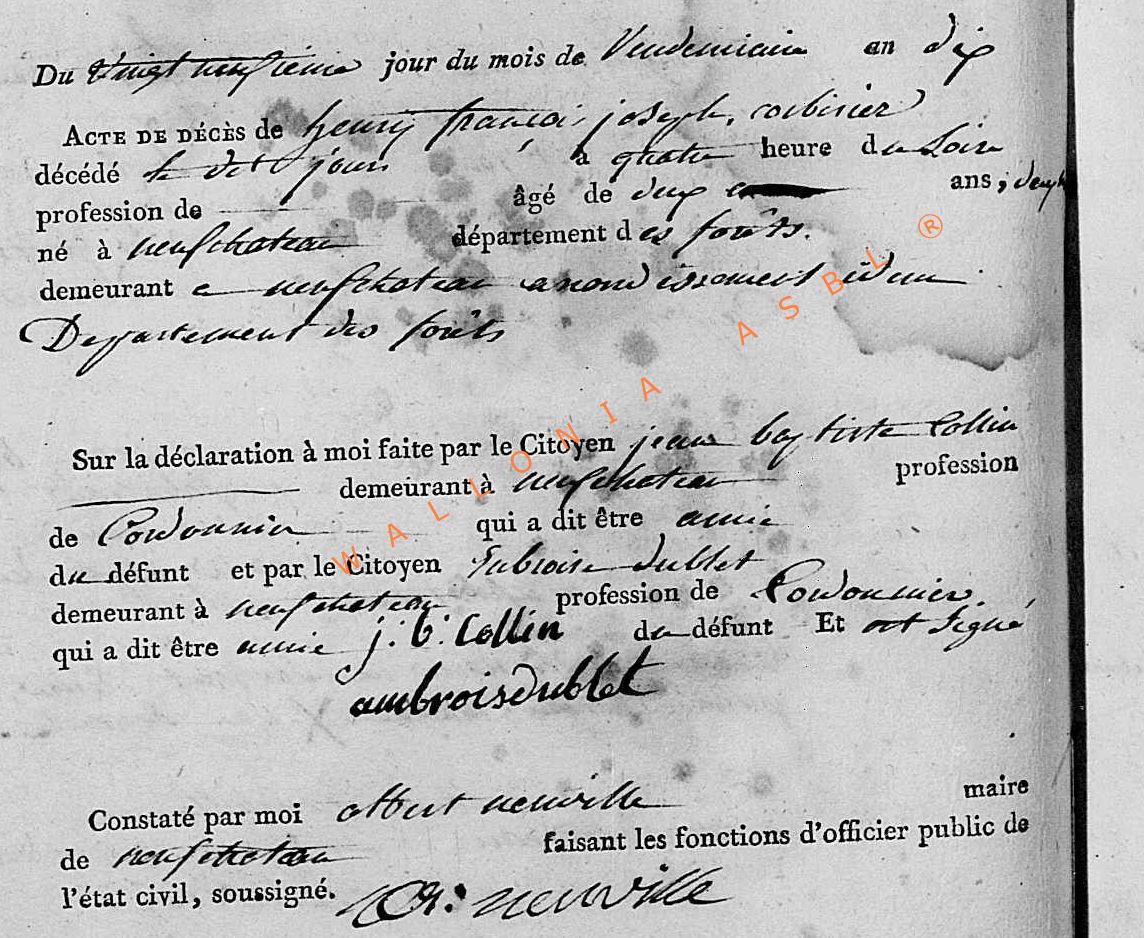 Du Vingt neufieme jour du mois de Vendemiaire an dix
ACTE DE DÉCÈS de henry françois joseph corbisier
décédé le dit jour à quatre heure du Soir
profession de âgé de deux ans, deux
né à neufchateau département des forêts.
demeurant a neufchateau arondissement idem
Departement des forêts
Sur la déclaration à moi faite par le Citoyen jean baptiste Collin
demeurant à neufchateau profession
de Cordonnier qui a dit être amie
du défunt et par le Citoyen dublet
demeurant à neufchateau profession de Cordonnier.
qui a dit être amie du défunt Et ont Signé
j: b: Collin
ambroisdublet
Constaté par moi albert neuville maire
de neufchateau faisant les fonctions d'officier public de
l'état civil, soussigné. neuville
WALLONIA ASBL ®